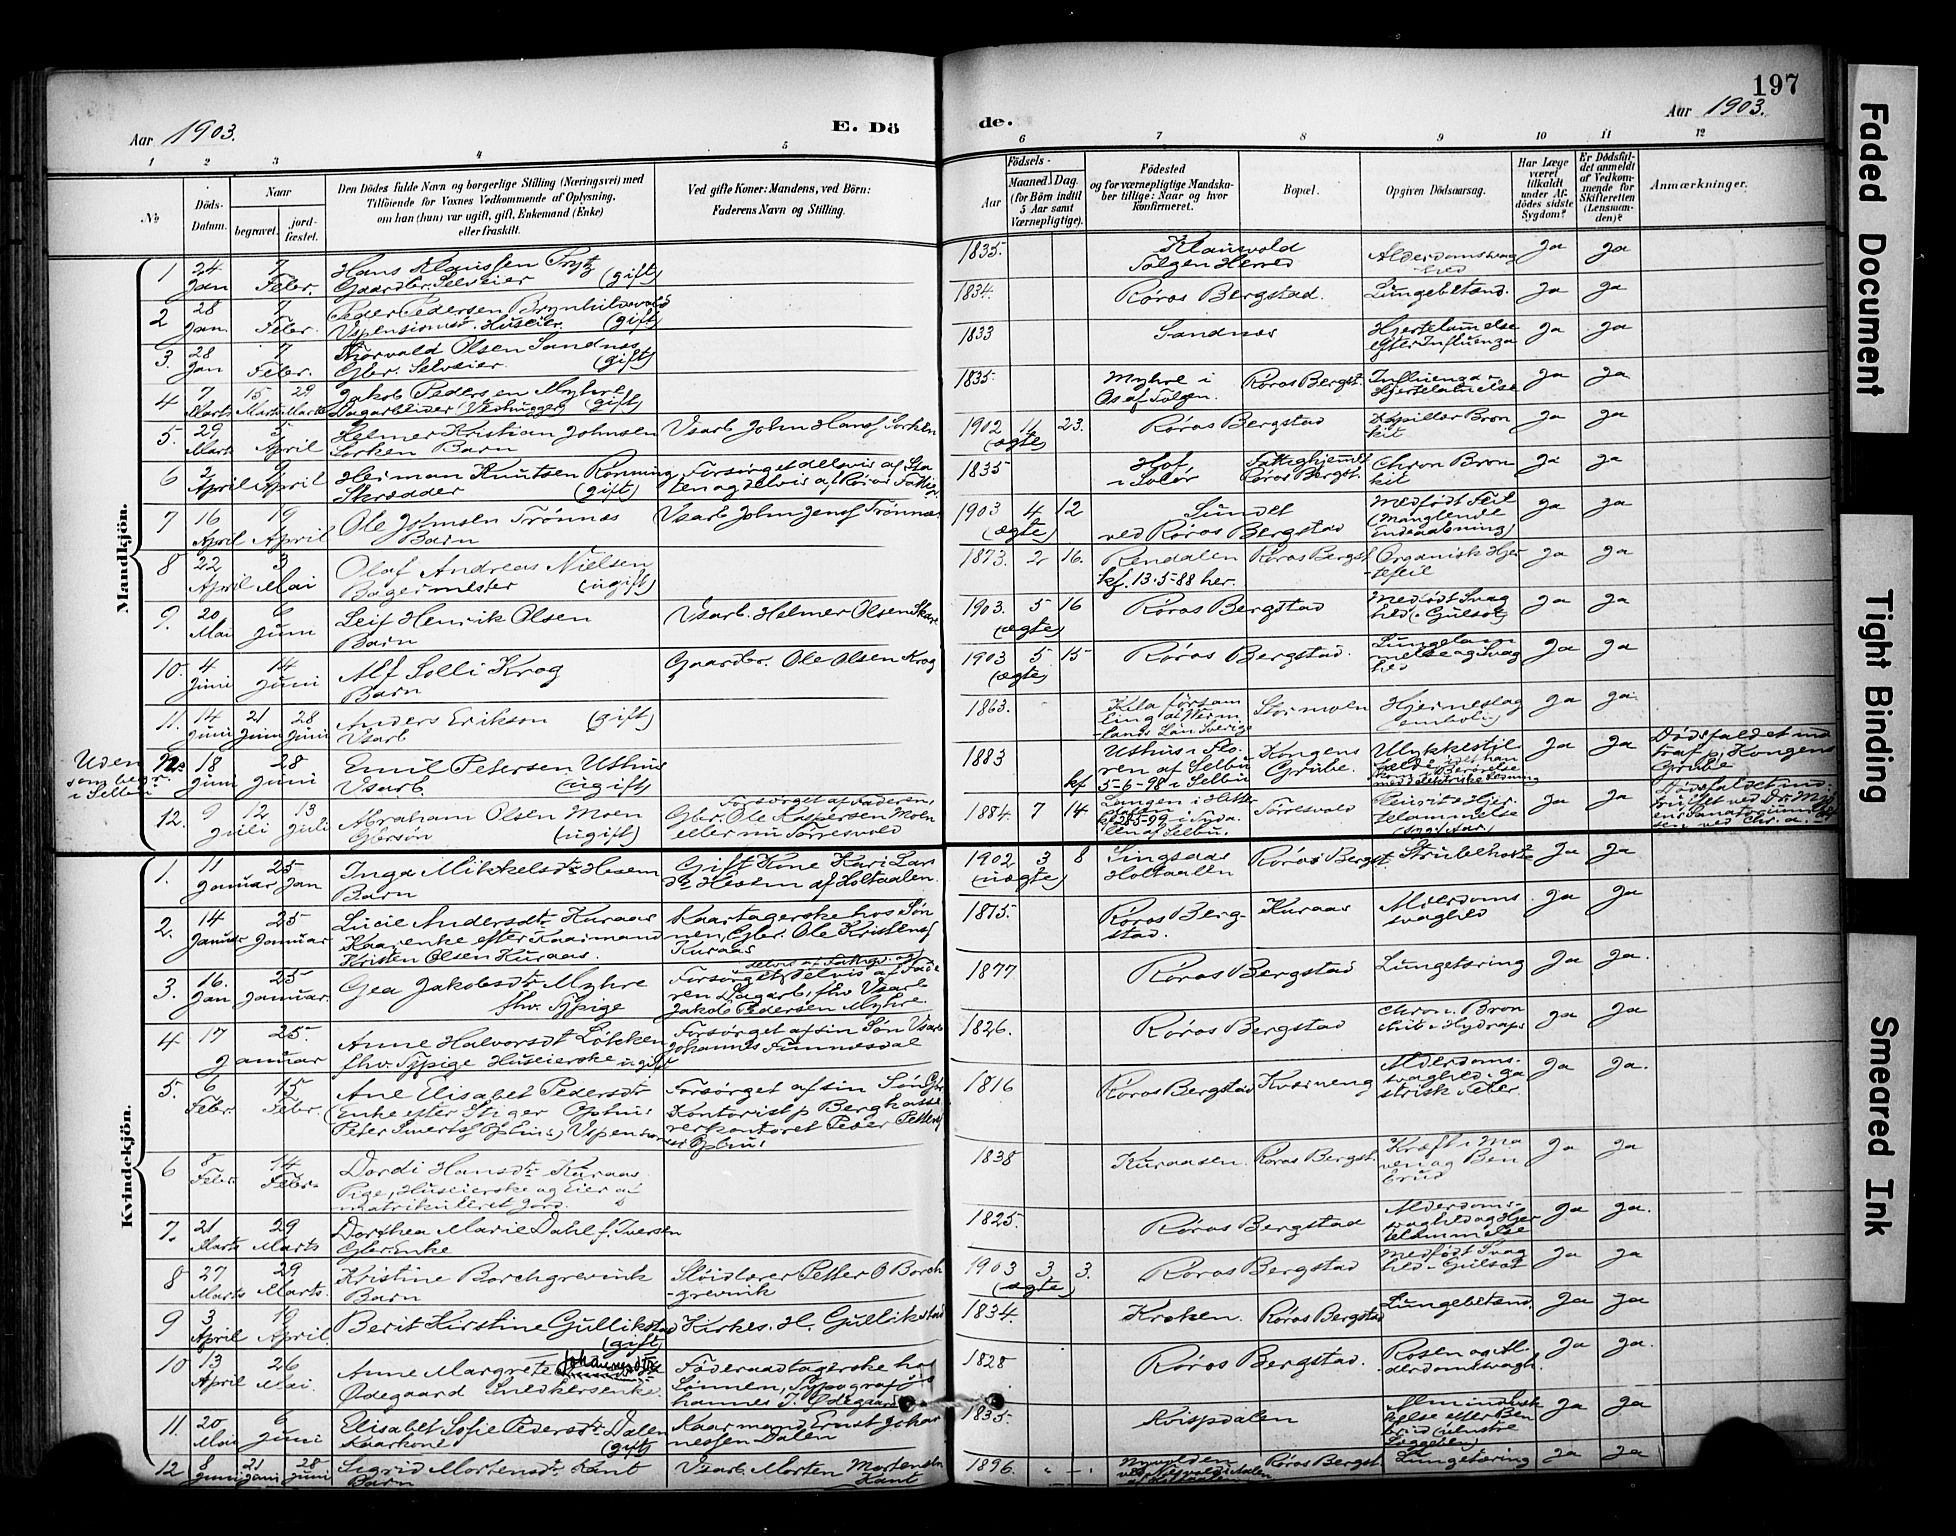 197
Aar 1903.
E. Dö
de.
Aar 1903.
1 2 3 4 5 6 7 8 9 10 11 12
№
Döds-Datum.
Naar
begravet.
jord-fæstet.
Den Dödes fulde Navn og borgerlige Stilling (Næringsvei) med
Tilföiende for Voxnes Vedkommende af Oplysning,
om han (hun) var ugift, gift, Enkemand (Enke)
eller fraskilt.
Ved gifte Koner: Mandens, ved Börn:
Faderens Navn og Stilling.
Födsels-
Aar
Maaned. Dag
(for Börn indtil
5 Aar samt
Værnepligtige).
Födested
og for værnepligtige Mandska-
ber tillige: Naar og hvor
konfirmeret.
Bopæl.
Opgiven Dödsaarsag.
Har Læge
været
tilkaldt
under Af-
dödes sidste
Sygdom?
Er Dödsfal-
det anmeldt
af Vedkom-
mende for
Skifteretten
(Lensman-
den)?
Anmærkninger.
Mandkjön.
1 24 Jan 7 Febr. Hans Klaussen Trytz
Gaardbr. Selveier (gift)
1835. Klausvold
Tolgen Herred Alderdomssvag
hed Ja Ja
2 28 Jan. 7 Febr. Peder Pedersen Brynhildsvold
Vspensionist. Huseier (gift)
1834. Røros Bergstad. Lungebetænd. Ja Ja
3. 28 Jan 7 Febr. Thorvald Olsen Sandnæs
Gbr. Selveier. (gift)
1833 Sandnæs Hjertelammelse
efter Influenza Ja Ja
4 7 Marts 15 Marts 29 Marts Jakob Pedersen Myhre
Dagarbeider (Vedhugger) (gift)
1835. Myhre i
Os af Tolgen. Røros Bergst. Influenza
Hjertelammelse Ja Ja
5. 29 Marts 5 April Helmer Kristian Johnsen
Sorken Barn Vsarb John Hansf Sorken
1902 (ægte) 23. Røros Bergstad Kapillær Bron
kit Ja Ja
6 2 April April Herman Knutsen Rønning
Skrædder (gift) Forsørget delvis af Sta
ten og delvis af Røros Fattig
1835 Hof,
i Solør Fattighjemmet
Røros Bergst. Chron Bron
kit Ja Ja
7 16 April 19 April Ole Johnsen Trønnæs
Barn Vsarb John Jensf Trønnæs
1903 4 12 (ægte) Sundet
ved Røros Bergstad Medfødt Feil
(Manglende
Endeaabning) Ja Ja
8 22 April 3 Mai Olaf Andreas Nielsen
Bagermester (ugift)
1873. 2 16. Rendalen
kf. 13-5-88 her. Røros Bergst Organisk Hjer
tefeil Ja Ja
9. 20 Mai 6 Juni Leif Henrik Olsen
Barn Vsarb. Helmer Olsen
1903. 5 16 (ægte) Røros Bergstad Medfødt Svag
hed. Gulsot Ja Ja
10. 4 Juni 14 Juni Alf Solli Krog
Barn Gaardbr. Ole Olsen Krog
1903 5 15 (ægte) Røros Bergstad. Lungelam
melse og Svag
hed Ja Ja
11. 14 Juni 21 Juni 28 Juni Anders Erikson (gift)
Vsarb
1863. Kila forsam
ling af Verm
lands Län Sverige Stormoen Hjerneslag
emboli Ja Ja
Uden No
som begr.
i Selbu
18 Juni 28 Juni Emil Petersen Uthus
Vsarb. (ugift)
1883 Uthus i Flo
ren af Selbu
kf 5-6-98 i Selbu Kongens
Grube. Ulykkestil
fælde, idet han
Ja Ja Dødsfaldet ind
traf p. Kongens
Grube
12. 9 Juli 12 Juli 13 Juli Abraham Olsen Moen
Gbrsøn (ugift) Forsørget af Faderen,
Gbr. Ole Kaspersen Moen
eller nu Torresvold
1884 7 14 Torresvold Hjer
telammelse Ja Ja
Kvindekjön.
1. 11 Januar 25 Jan Inga Mikkelsdtr Hesem
Barn Gift Kone Kari Lars
Hesem af Holtaalen.
1902 3 8 (uægte) Singsaas
Holtaalen Røros Bergst. Strubehoste Ja Ja
2. 14 Januar 25 Januar Lucie Andersdtr Kuraas
Kaarenke efter Kaarmand
Kristen Olsen Kuraas. Kaartagerske hos Søn
nen, Gbr. Ole Kristensf
Kuraas
1815. Røros Berg-
stad. Kuraas Alderdoms
svaghed Ja Ja
3. 16. Jan 25 Januar. Gea Jakobsdtr Myhre
fhv. Sypige Forsørget delvis af Fade
ren Dagarb, fhv Vsarb
Jakob Pedersen Myhre.
1877 Røros Bergstad Lungetæring Ja Ja.
4 17 25. Januar Anne Halvorsdt Løkken
fhv. Sypige Huseierske ugift Forsørget af sin Søn Vsarb
Johannes Finnesdal
1826. Røros Bergstad Chron. Bron
kit Hydrops Ja Ja
5. 6 Febr. 15 Febr. Ane Elisabet Pedersdt
(Enke efter Stiger Ophus
Peter Sivertsf Ophus) Forsørget af sin Søn
Kontorist p Bergkasse
rerkontoret Peder Petters
Ophus
1816 Røros Bergstad Kværneng Alderdoms-
svaghed. ga
strisk Feber. Ja Ja.
6 8 Febr. 14 Febr. Dordi Hansdtr Kuraas
Pige, Huseierske og Eier af
matrikulleret Jord.
1838 Kuraasen. Røros Bergst. Kræft i Ma
ven og Ben
brud Ja Ja
7. 21 Marts 29 Marts Dorthea Marie Dahl f. Iversen
Gbr. Enke
1825. Røros Bergstad Alderdoms-
svaghed og Hjer
telammelse Ja Ja.
8 27 Marts 29 Marts. Kristine Borchgrevink
Barn Sløidlærer Petter O Borch
-grevink
1903 3 3. (ægte) Røros Bergstad Medfødt Svag
hed. Gulsot Ja Ja
9 3 April 19 April Berit Kirstine Gullikstad
(gift) Kirkes. H. Gullikstad
1834. Kroken. Røros Bergstad Lungebetænd. Ja Ja
10 13 April 26 Mai. Anne Margrete Johannesdtr
Ødegaard Snedkersenke. Føderaadtagerske hos
Sønnen, Typograf Jo
hannes J. Ødegaard
1828 Røros Bergstad. Rosen og Al
derdomssvagh. Ja Ja.
11. 20 Mai 6 Juni Elisabet Sofie Pedersdt. Dalen
Kaarkone (gift) Kaarmand Ernst Johan
nessen Dalen
1835. Kvipsdalen Almindelsvæk
kelse efter Ben
brud (venstre
Læggeben) Ja Ja
12 8 Juni 21 Juni 28 Juni Sigrid Mortensdt. Kant
Barn Vsarb. Morten Mortensen
Kant
1896. Røros Bergst. Lungetæring Ja Ja
Faded Document
Tight Binding
Smeared Ink